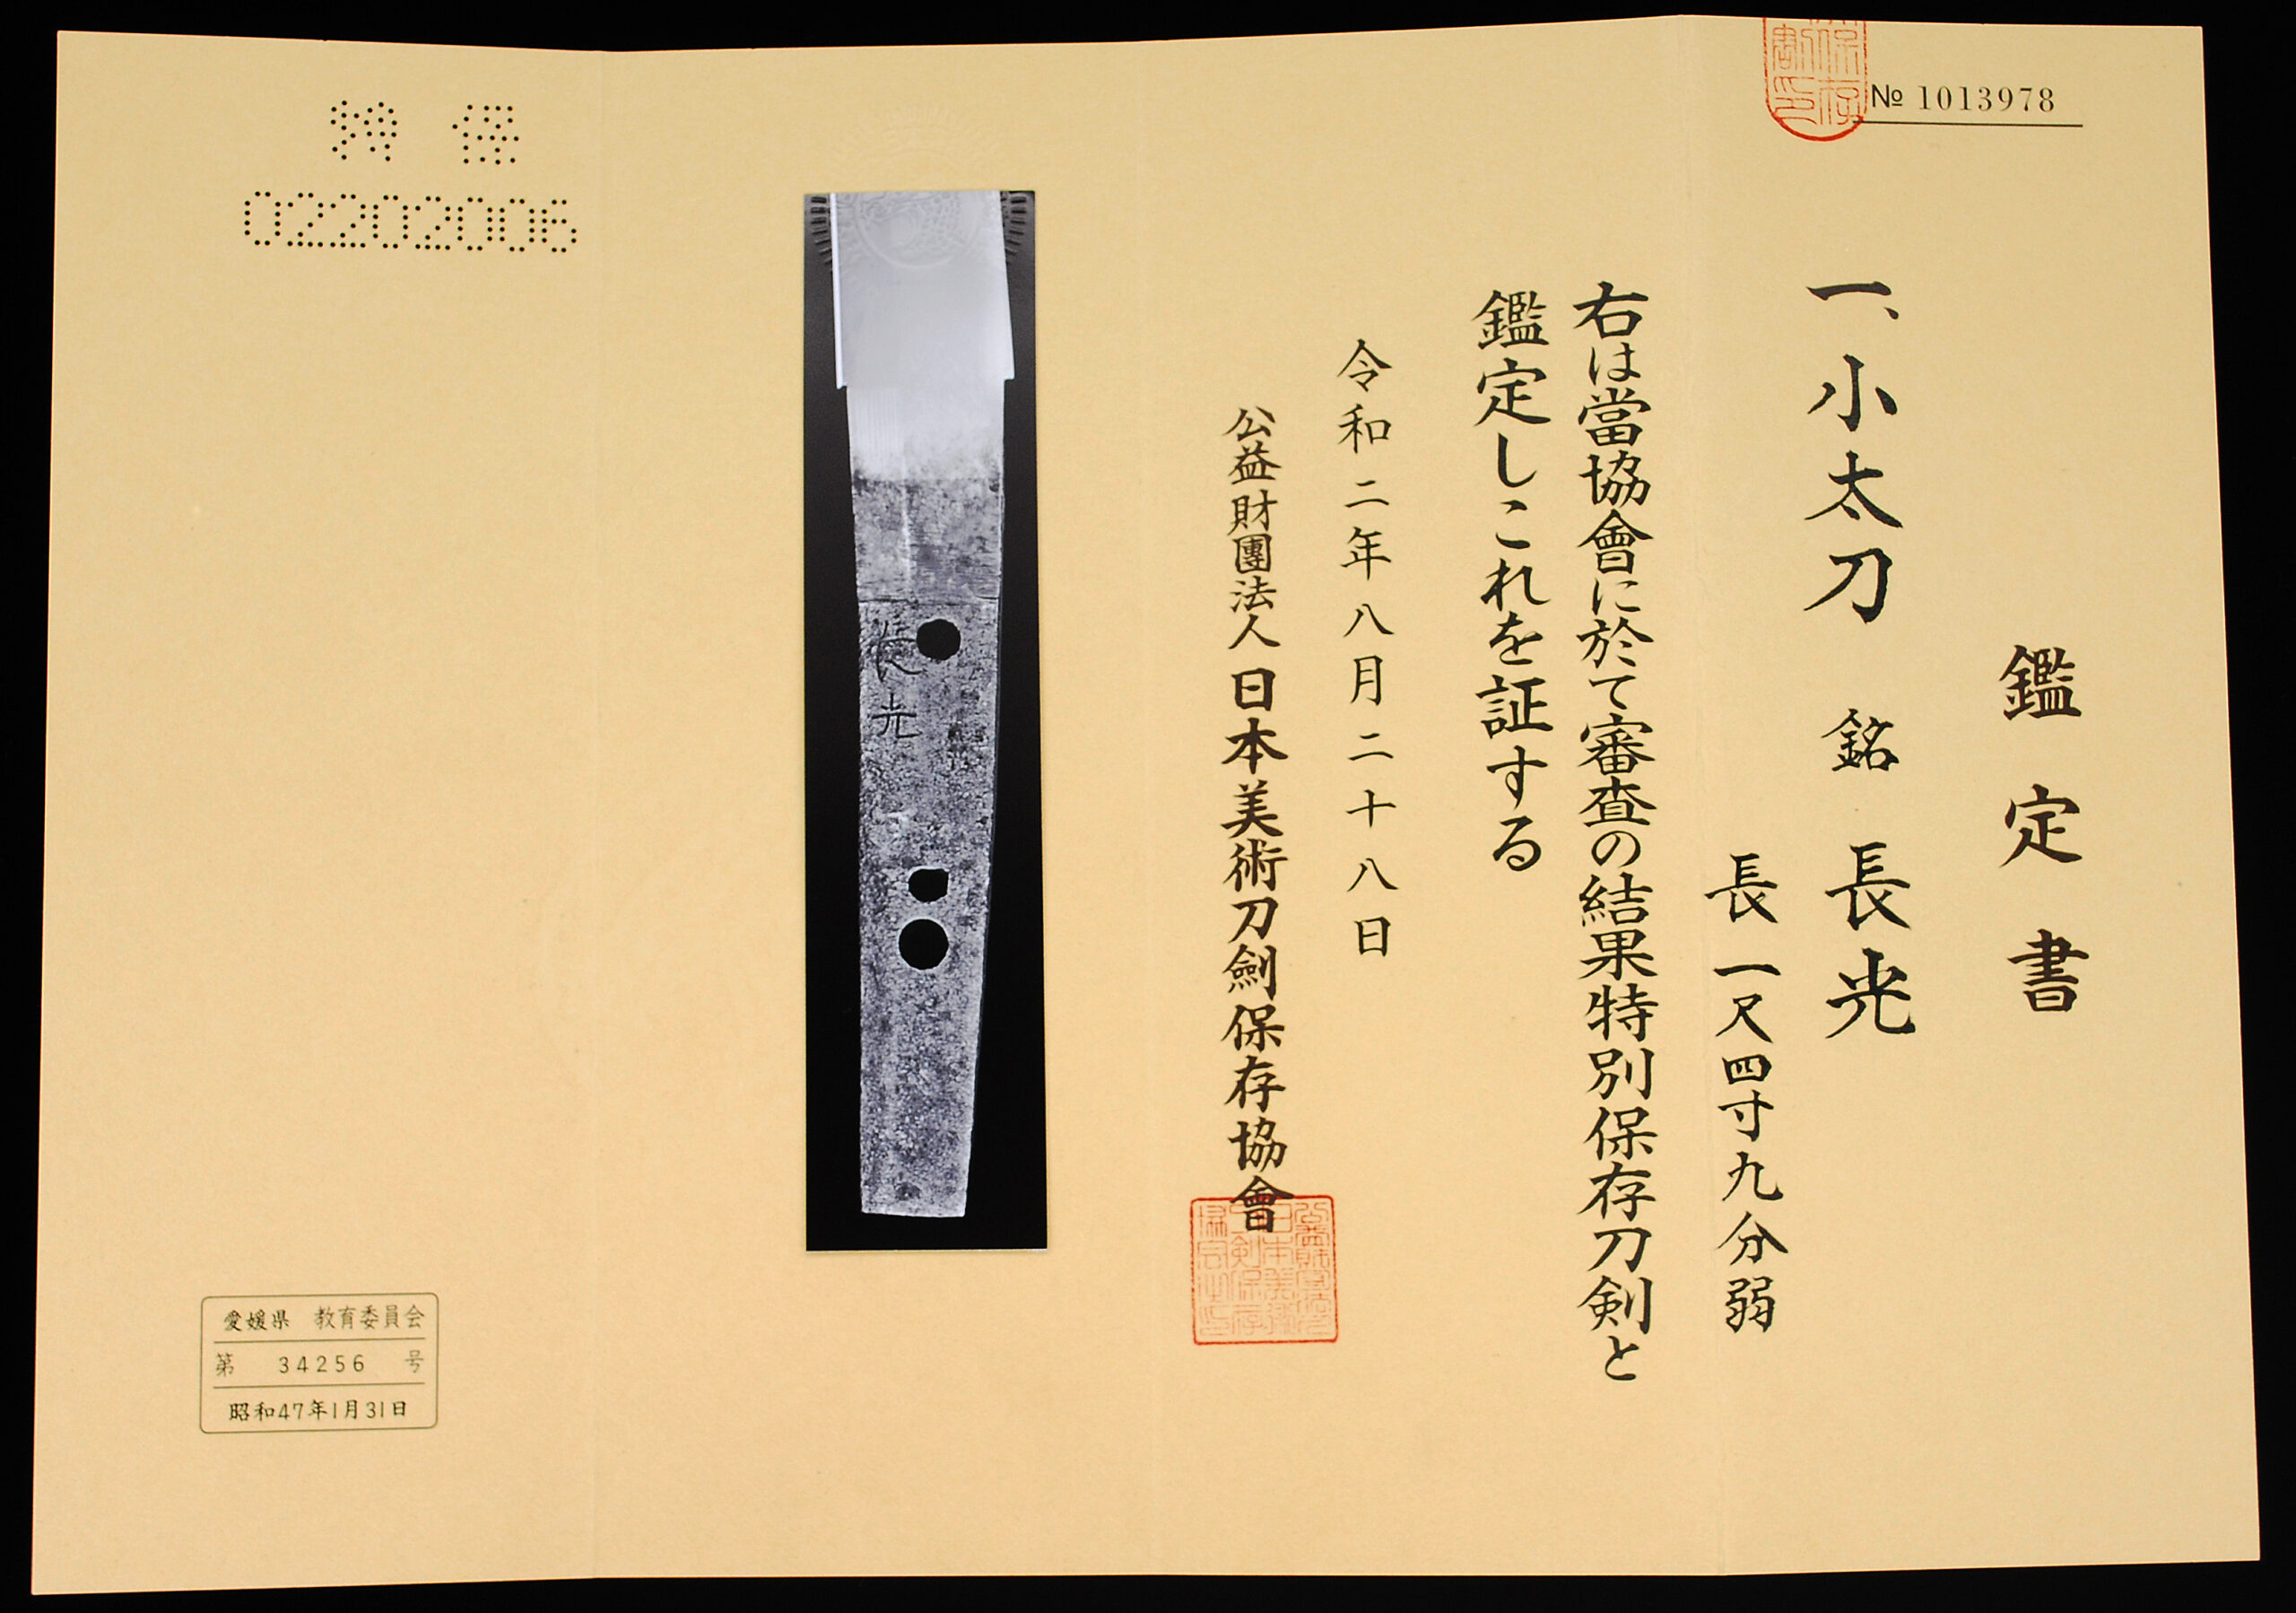 № 1013978
鑑定書
一、小太刀 銘 長光
長一尺四寸九分弱
右は當協會に於て審査の結果特別保存刀剣と
鑑定しこれを証する
令和二年八月二十八日
公益財團法人日本美術刀劍保存協會
長光
特保
02202006
愛媛県 教育委員会
第 34256 号
昭和47年1月31日